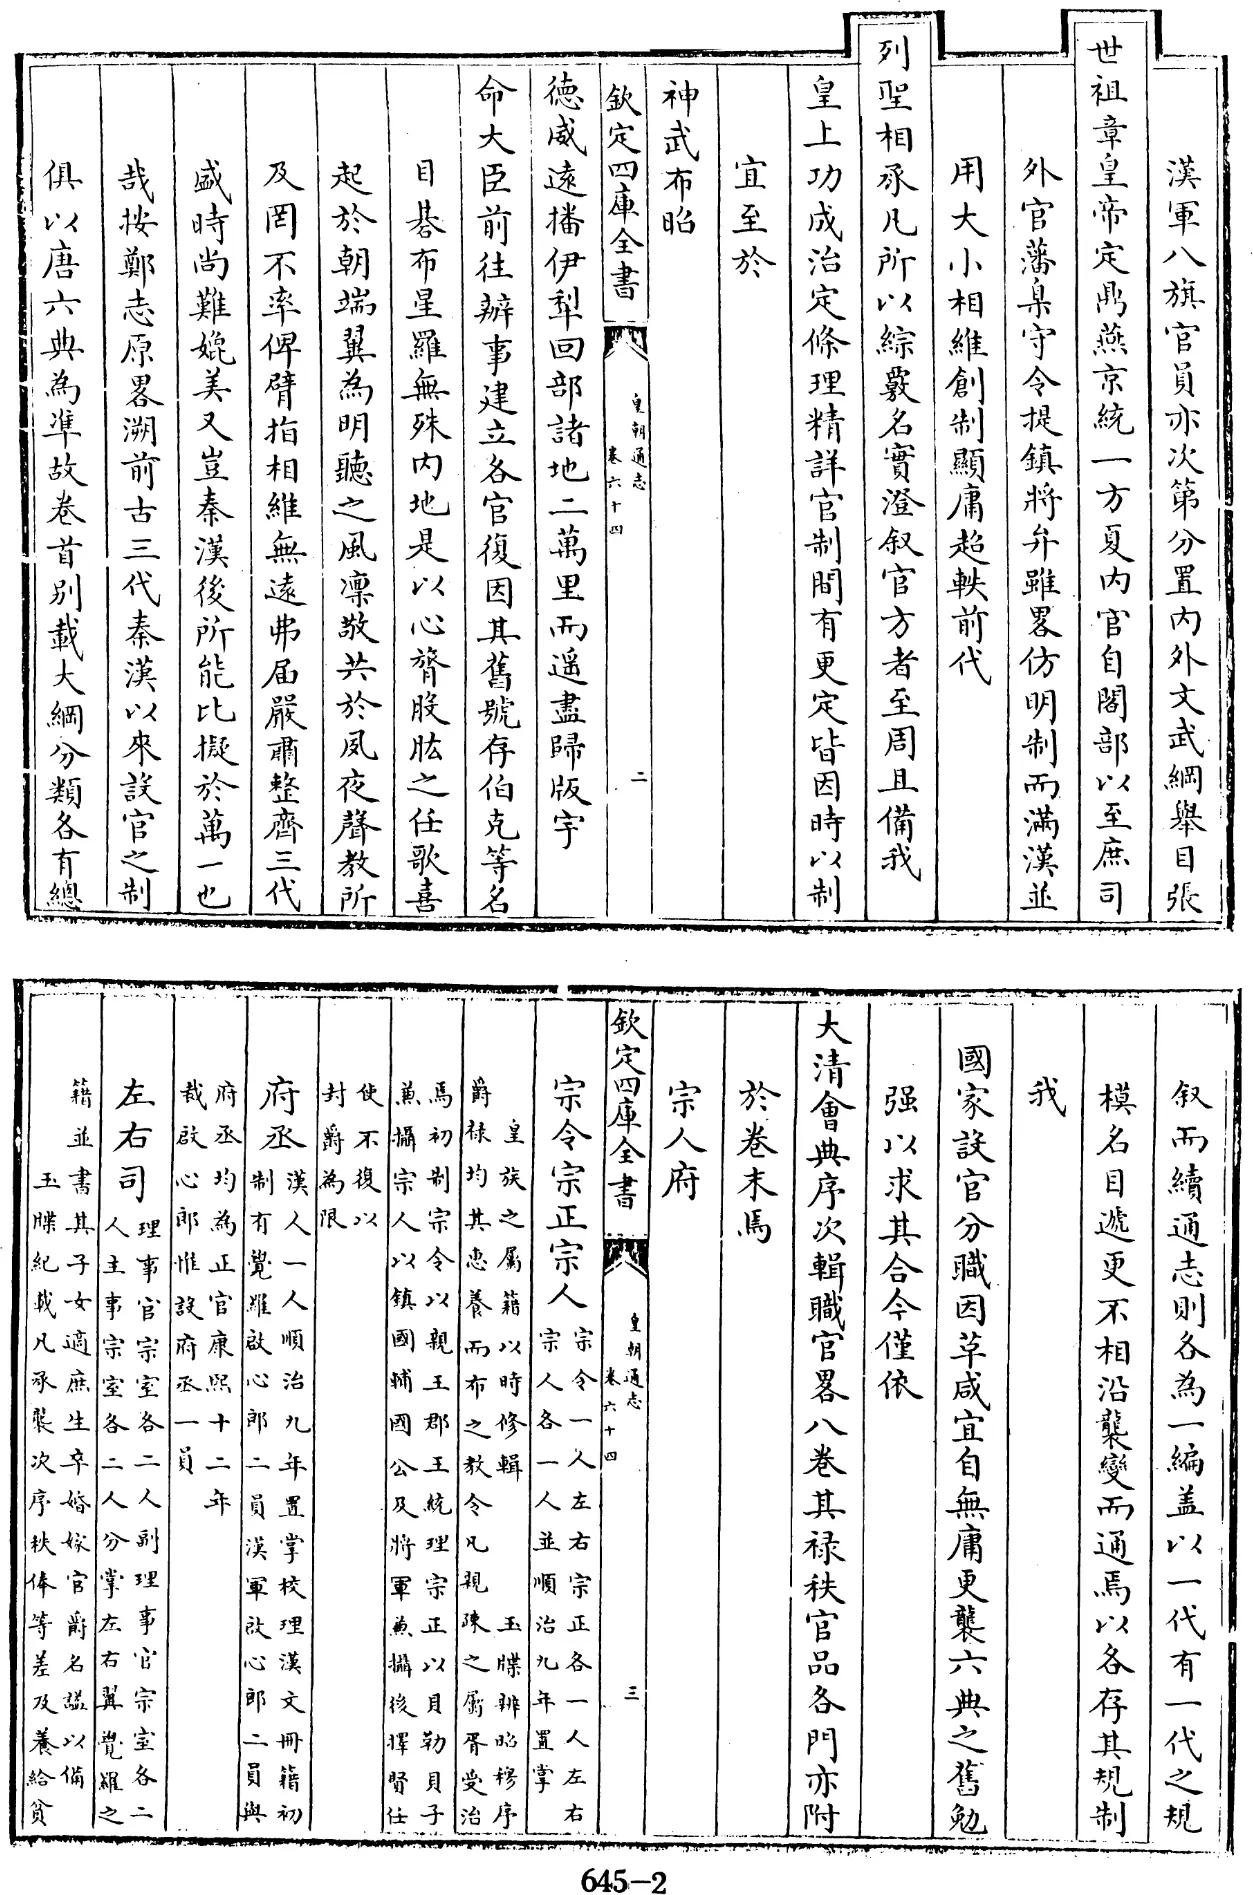 漢軍八旗官員亦次第分置内外文武綱舉目張
世祖章皇帝定鼎燕京統一方夏内官自閣部以至庶司
外官藩臬守令提鎮將弁雖畧仿明制而滿漢並
用大小相維創制顯庸超軼前代
列聖相承凡所以綜覈名實澄叙官方者至周且備我
皇上功成治定條理精詳官制間有更定皆因時以制
宜至於
神武布昭
欽定四庫全書
皇朝通志
卷六十四
二
德威遠播伊犁回部諸地二萬里而遥盡歸版宇
命大臣前往辦事建立各官復因其舊號存伯克等名
目碁布星羅無殊内地是以心膂股肱之任歌喜
起於朝端翼為明聽之風凛敬共於夙夜聲教所
及罔不率俾臂指相維無遠弗届嚴肅整齊三代
盛時尚難媲美又豈秦漢後所能比擬於萬一也
哉按鄭志原畧溯前古三代秦漢以來設官之制
俱以唐六典為準故卷首别載大綱分類各有總
叙而續通志則各為一編盖以一代有一代之規
模名目遞更不相沿襲變而通焉以各存其規制
我
國家設官分職因革咸宜自無庸更襲六典之舊勉
强以求其合今僅依
大清會典序次輯職官畧八卷其禄秩官品各門亦附
於卷末焉
宗人府
欽定四庫全書
皇朝通志
卷六十四
三
宗令宗正宗人
宗令一人左右宗正各一人左右
宗人各一人並順治九年置掌
皇族之屬籍以時修輯玉牒辨昭穆序
爵禄均其惠養而布之教令凡親疎之屬胥受治
焉初制宗令以親王郡王統理宗正以貝勒貝子
兼攝宗人以鎮國輔國公及將軍兼攝後擇賢任
使不復以
封爵為限
府丞
漢人一人順治九年置掌校理漢文冊籍初
制有覺羅啟心郎二員漢軍啟心郎二員與
府丞均為正官康熙十二年
裁啟心郎惟設府丞一員
左右司
理事官宗室各二人副理事官宗室各二
人主事宗室各二人分掌左右翼覺羅之
籍並書其子女適庶生卒婚嫁官爵名諡以備
玉牒紀載凡承襲次序秩俸等差及養給貧
645-2